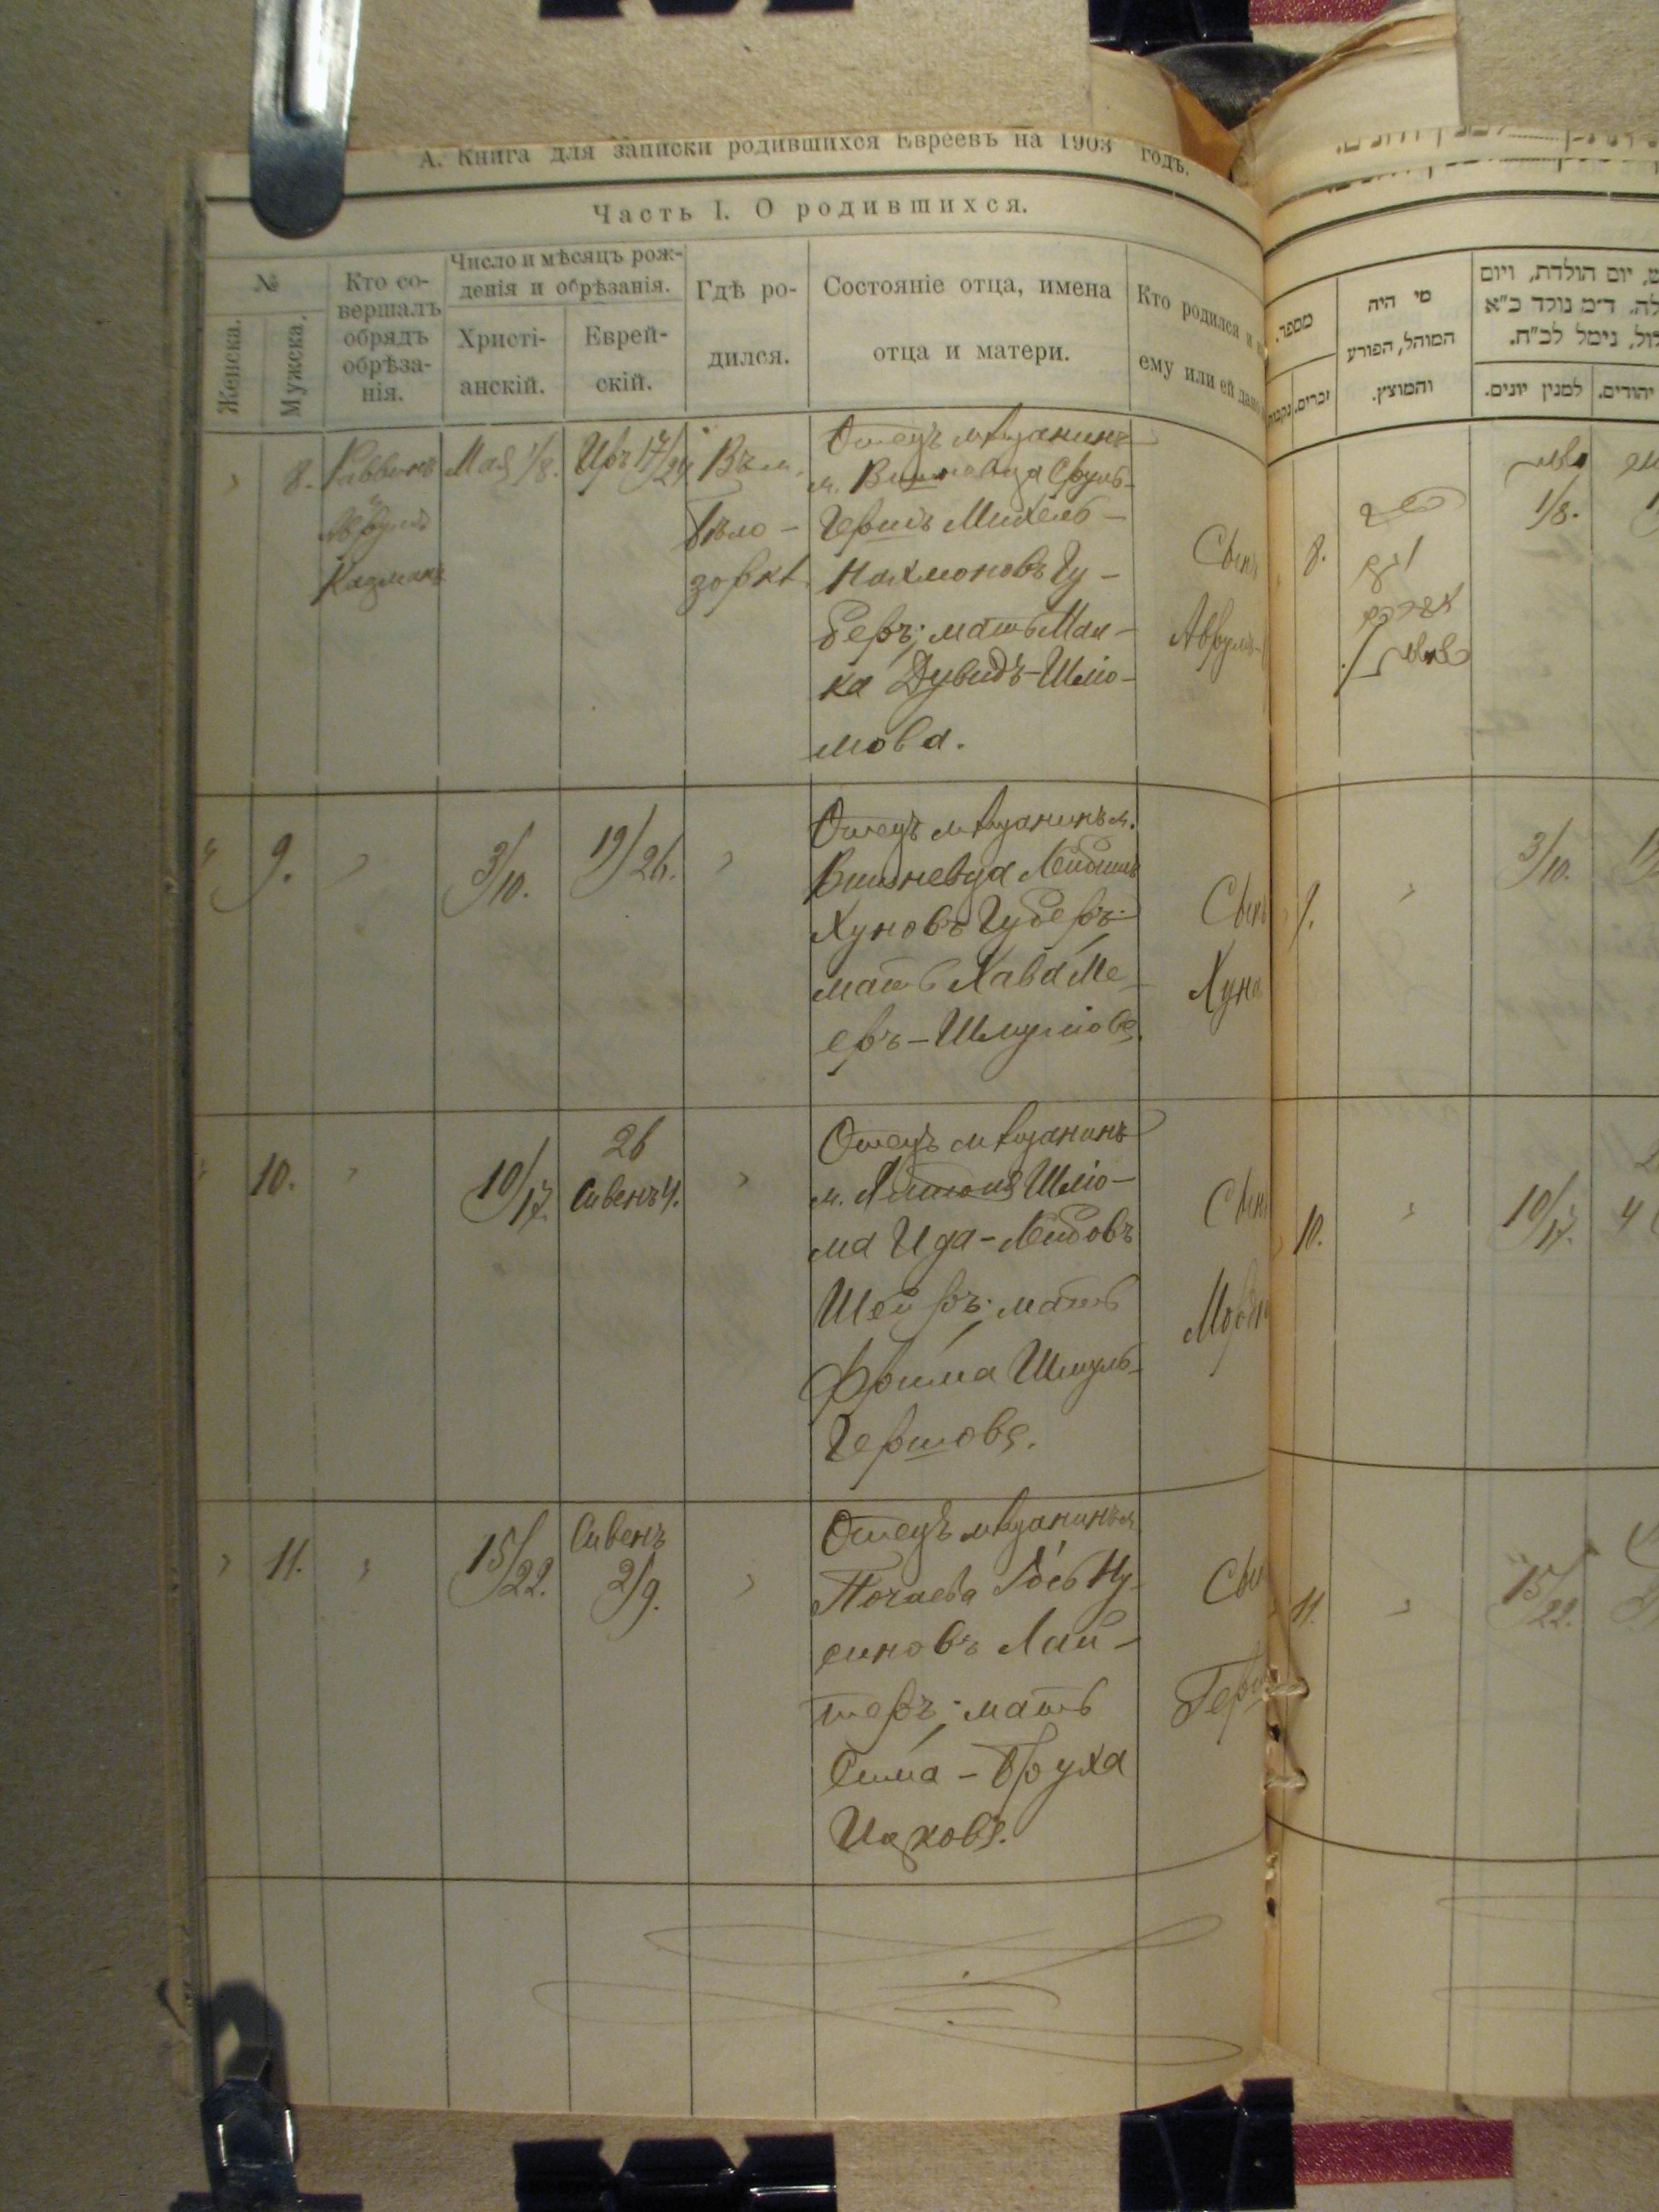 А. Книга для записки родившихся Евреевъ на 1903 годъ.
Часть I. О родившихся.
№
Женска.
Мужска.
Кто со-
вершалъ
обрядъ
обрѣза-
нія.
Число и мѣсяцъ рож-
денія и обрѣзанія.
Христі-
анскій.
Еврей-
скій.
Гдѣ ро-
дился.
Состояніе отца, имена
отца и матери.
Кто родился и
ему или ей дано
8.
Раввинъ
Кацманъ
Мая 1/8.
Иръ 17/24
Въ м.
Бѣло-
зоркѣ
Отецъ мѣщанинъ
м. Вишневца Сруль-
Гершъ Михель-
Нахмоновъ Гу-
беръ; мать Мал-
ка Дувидъ-Шліо-
мова.
Сынъ
Аврумъ-
9.
3/10.
19/26.
Отецъ мѣщанинъ м.
Вишневца Лейбишъ
Хуновъ Губеръ;
мать Хава Ме-
еръ-Шмуліова.
Сынъ
Хуна
10.
10/17.
26
Сивенъ 4.
Отецъ мѣщанинъ
м. Шліо-
ма Ица-Лейбовъ
Шойръ; мать
Фрима Шмуль-
Гершова.
Сынъ
11.
15/22.
Сивенъ
2/9.
Отецъ мѣщанинъ м.
Почаева Ну-
синовъ Лай-
теръ; мать
Сима-Бруха
Ицкова.
מספר.
זכרים.
נקבות
מי היה
המוהל, הפורע
והמוצץ.
ש, יום הולדת, ויום
לה. ד״מ נולד כ״א
לול, נימל לכ״ח.
למנין יונים.
יהודים.
8.
1/8.
9.
3/10.
10.
10/17.
4
11.
15/22.